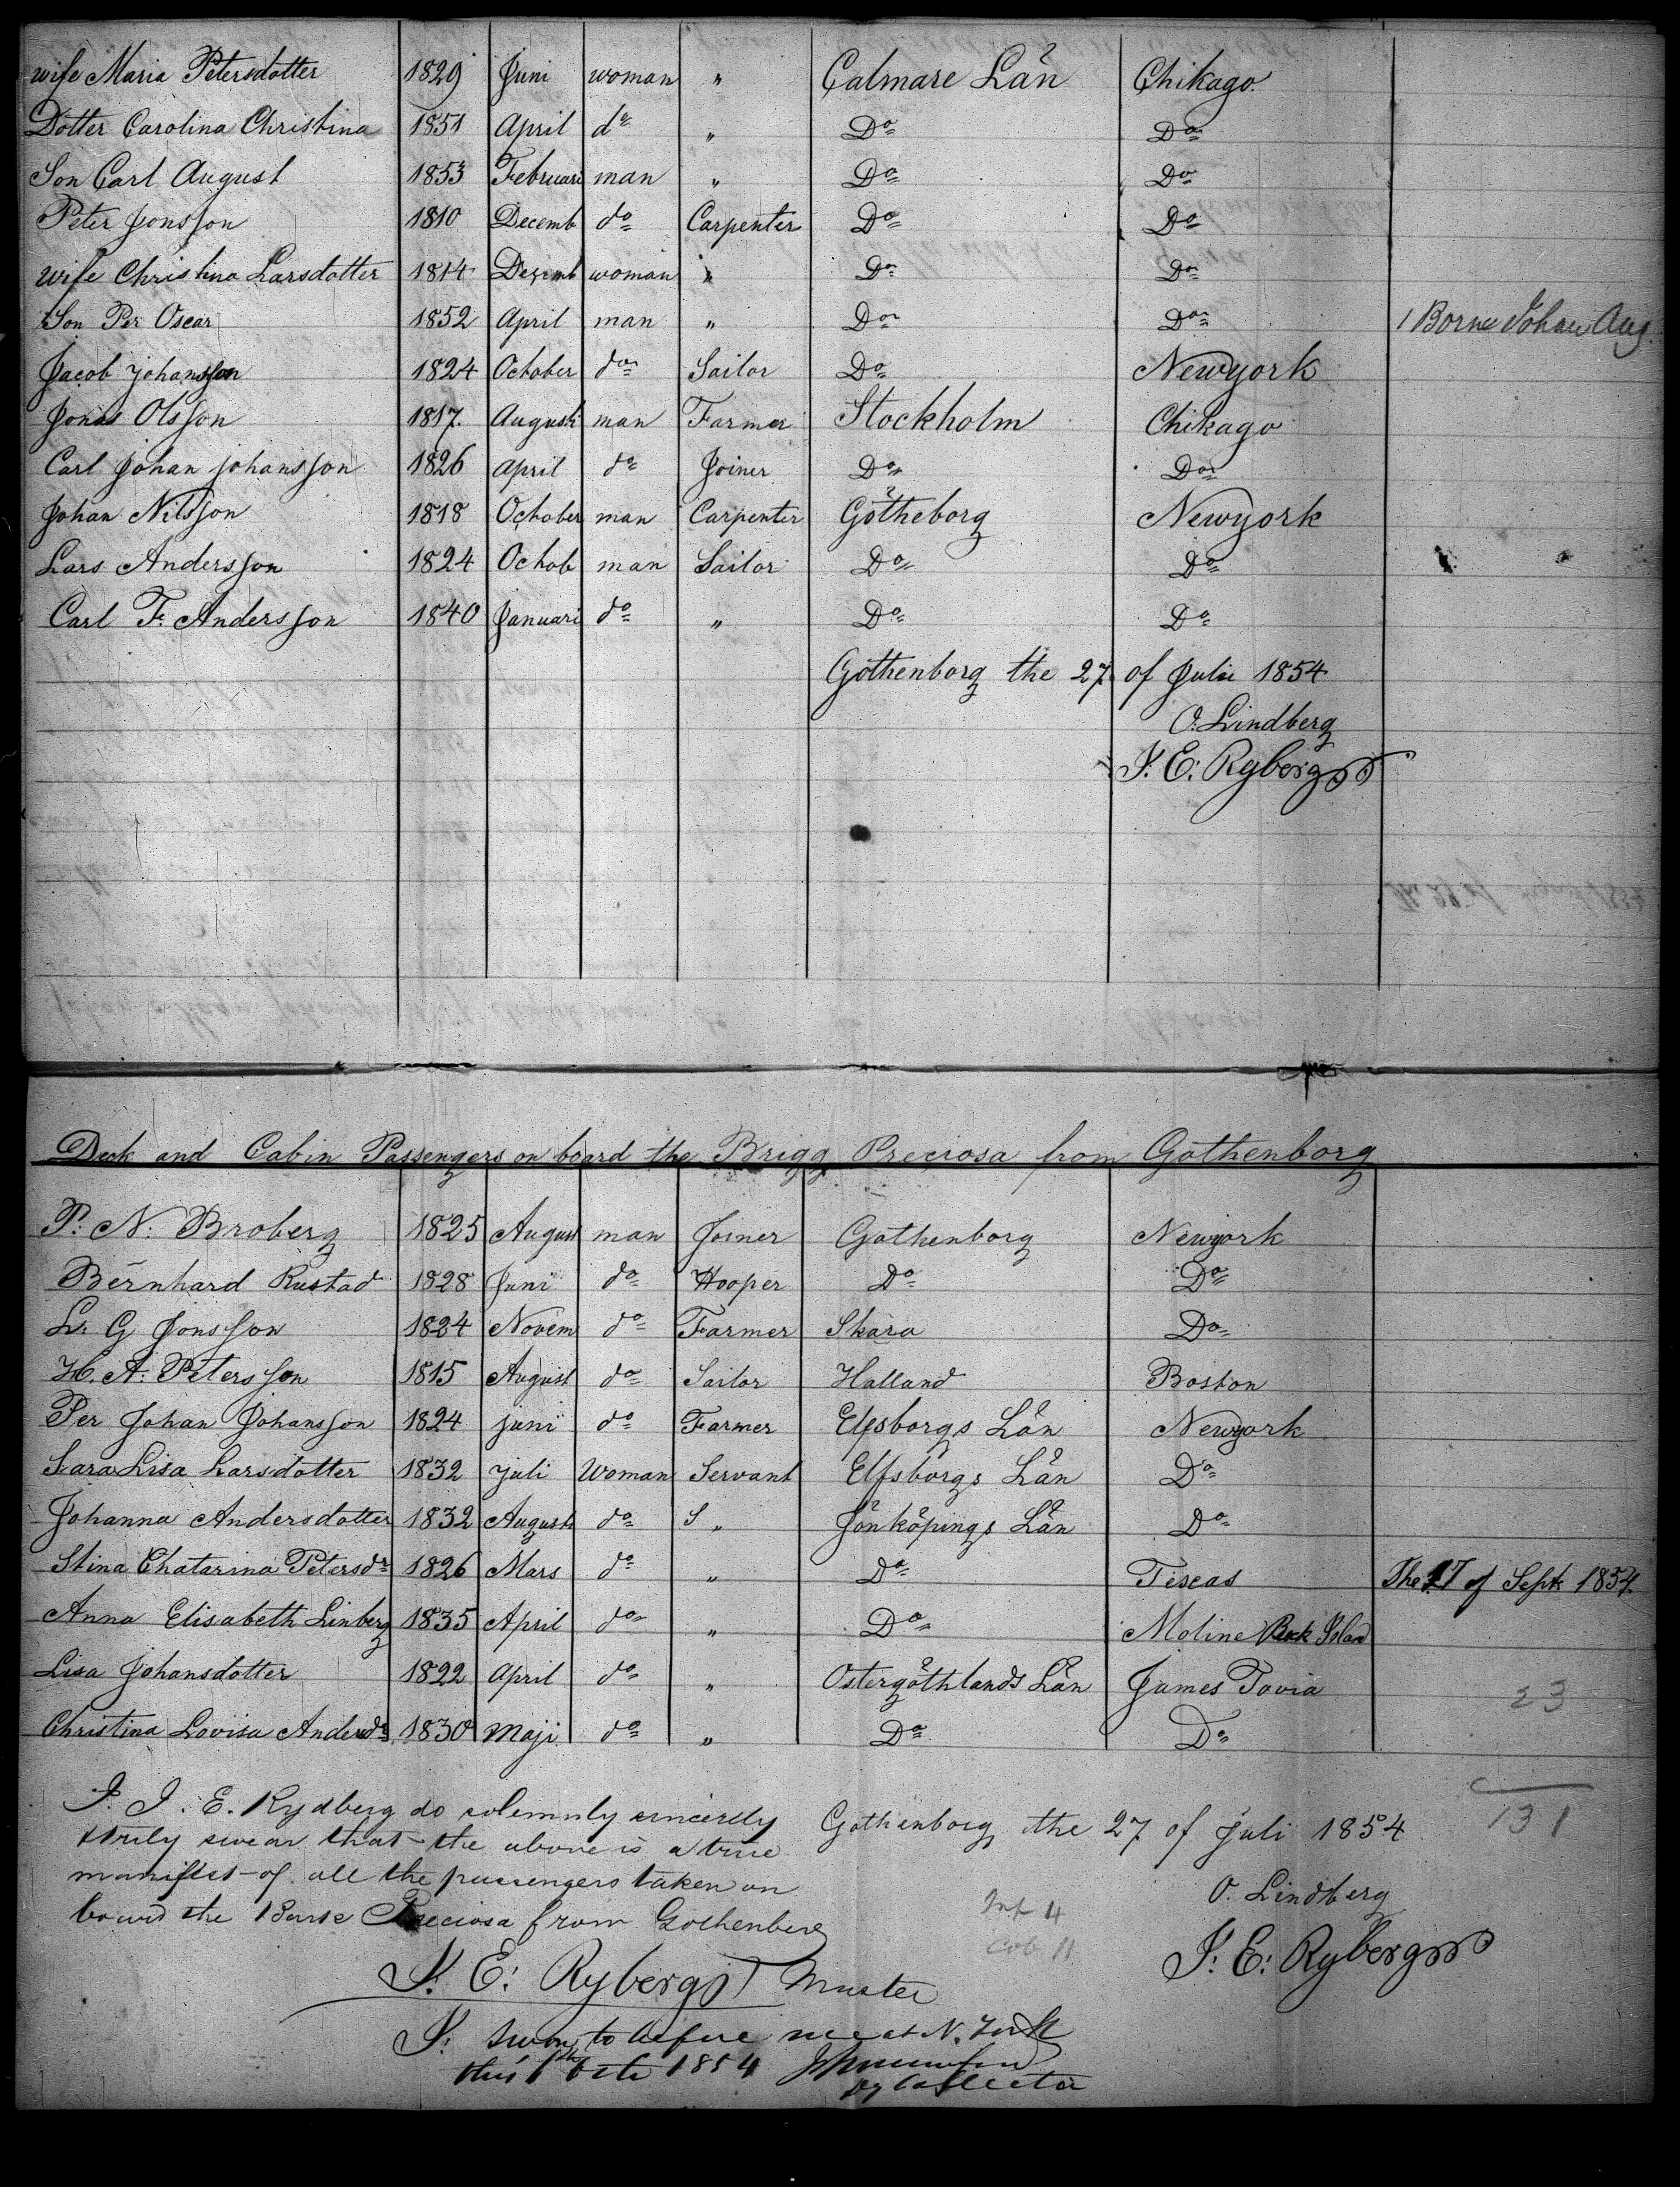 wife Maria Petersdotter 1829 Juni woman " Calmare Län Chikago.
Dotter Carolina Christina 1851 April do " Do Do
Son Carl August 1853 Februari man " Do Do
Peter Jonsson 1810 Decemb do Carpenter Do Do
wife Christina Larsdotter 1814 Decemb woman " Do Do
Son Per Oscar 1852 April man " Do Do 1 Borne Johan Aug.
Jacob Johansson 1824 October do Sailor Do Newyork
Jonas Olsson 1817. Augusti man Farmer Stockholm Chikago
Carl Johan Johansson 1826 April do Joiner Do Do
Johan Nilsson 1818 October man Carpenter Götheborg Newyork
Lars Andersson 1824 Octob man Sailor Do Do
Carl F. Andersson 1840 Januari do " Do Do
Göthenborg the 27 of Julie 1854
O. Lindberg
J. E. Ryberg
Deck and Cabin Passengers on board the Brigg Preciosa from Gothenborg
P. N. Broberg 1825 August man Joiner Gothenborg Newyork
Bernhard Rustad 1828 Juni do Hooper Do Do
L. G Jonsson 1824 Novem do Farmer Skara Do
H. A. Petersson 1815 August do Sailor Halland Boston
Per Johan Johansson 1824 juni do Farmer Elfsborgs Län Newyork
Sara Lisa Larsdotter 1832 Juli Woman Servant Elfsborgs Län Do
Johanna Andersdotter 1832 August do S " Jönköpings Län Do
Stina Chatarina Petersdr 1826 Mars do " Do Tiseas The 17 of Sept 1854.
Anna Elisabeth Linberg 1835 April do " Do Moline Rock Island
Lisa Johansdotter 1822 April do " Ostergöthlands Län James Tovia 23
Christina Lovisa Andersdr 1830 Maji do " Do Do
I. J. E. Rydberg do solemnly sincerely
& truly swear that the above is a true
manifest of all the passengers taken on
board the Bark Preciosa from Gothenberg
Gothenborg the 27 of Juli 1854 131
O. Lindberg
Inf 4
Cob 11
J. E. Ryberg
J. E. Ryberg Master
Sworn to before me at N. York
this 1st Octo 1854
Dy Collector